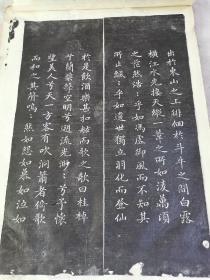 出於東山之上徘徊於斗牛之間白露
橫江水光接天縱一葦之所如凌萬頃
之茫然浩〻乎如馮虛御風而不知其
所止飄〻乎如遺世獨立羽化而登仙
於是飲酒樂甚扣舷而歌之歌曰桂棹
兮蘭槳擊空明兮遡流光渺〻兮予懷
望美人兮天一方客有吹洞簫者倚歌
而和之其聲嗚〻然如怨如慕如泣如